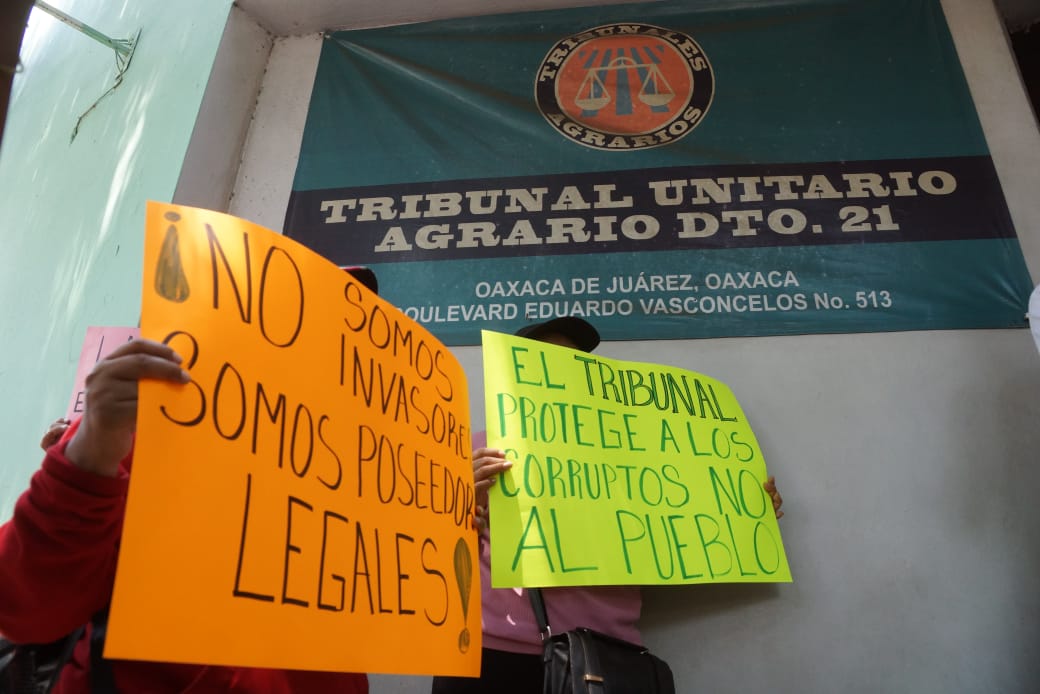 TRIBUNALES
AGRARIOS
TRIBUNAL UNITARIO
AGRARIO DTO. 21
OAXACA DE JUÁREZ, OAXACA
OULEVARD EDUARDO VASCONCELOS No. 513
¡NO SOMOS
INVASORE
SOMOS POSEEDOR
LEGALES!
EL TRIBUNAL
PROTEGE A LOS
CORRUPTOS NO
AL PUEBLO